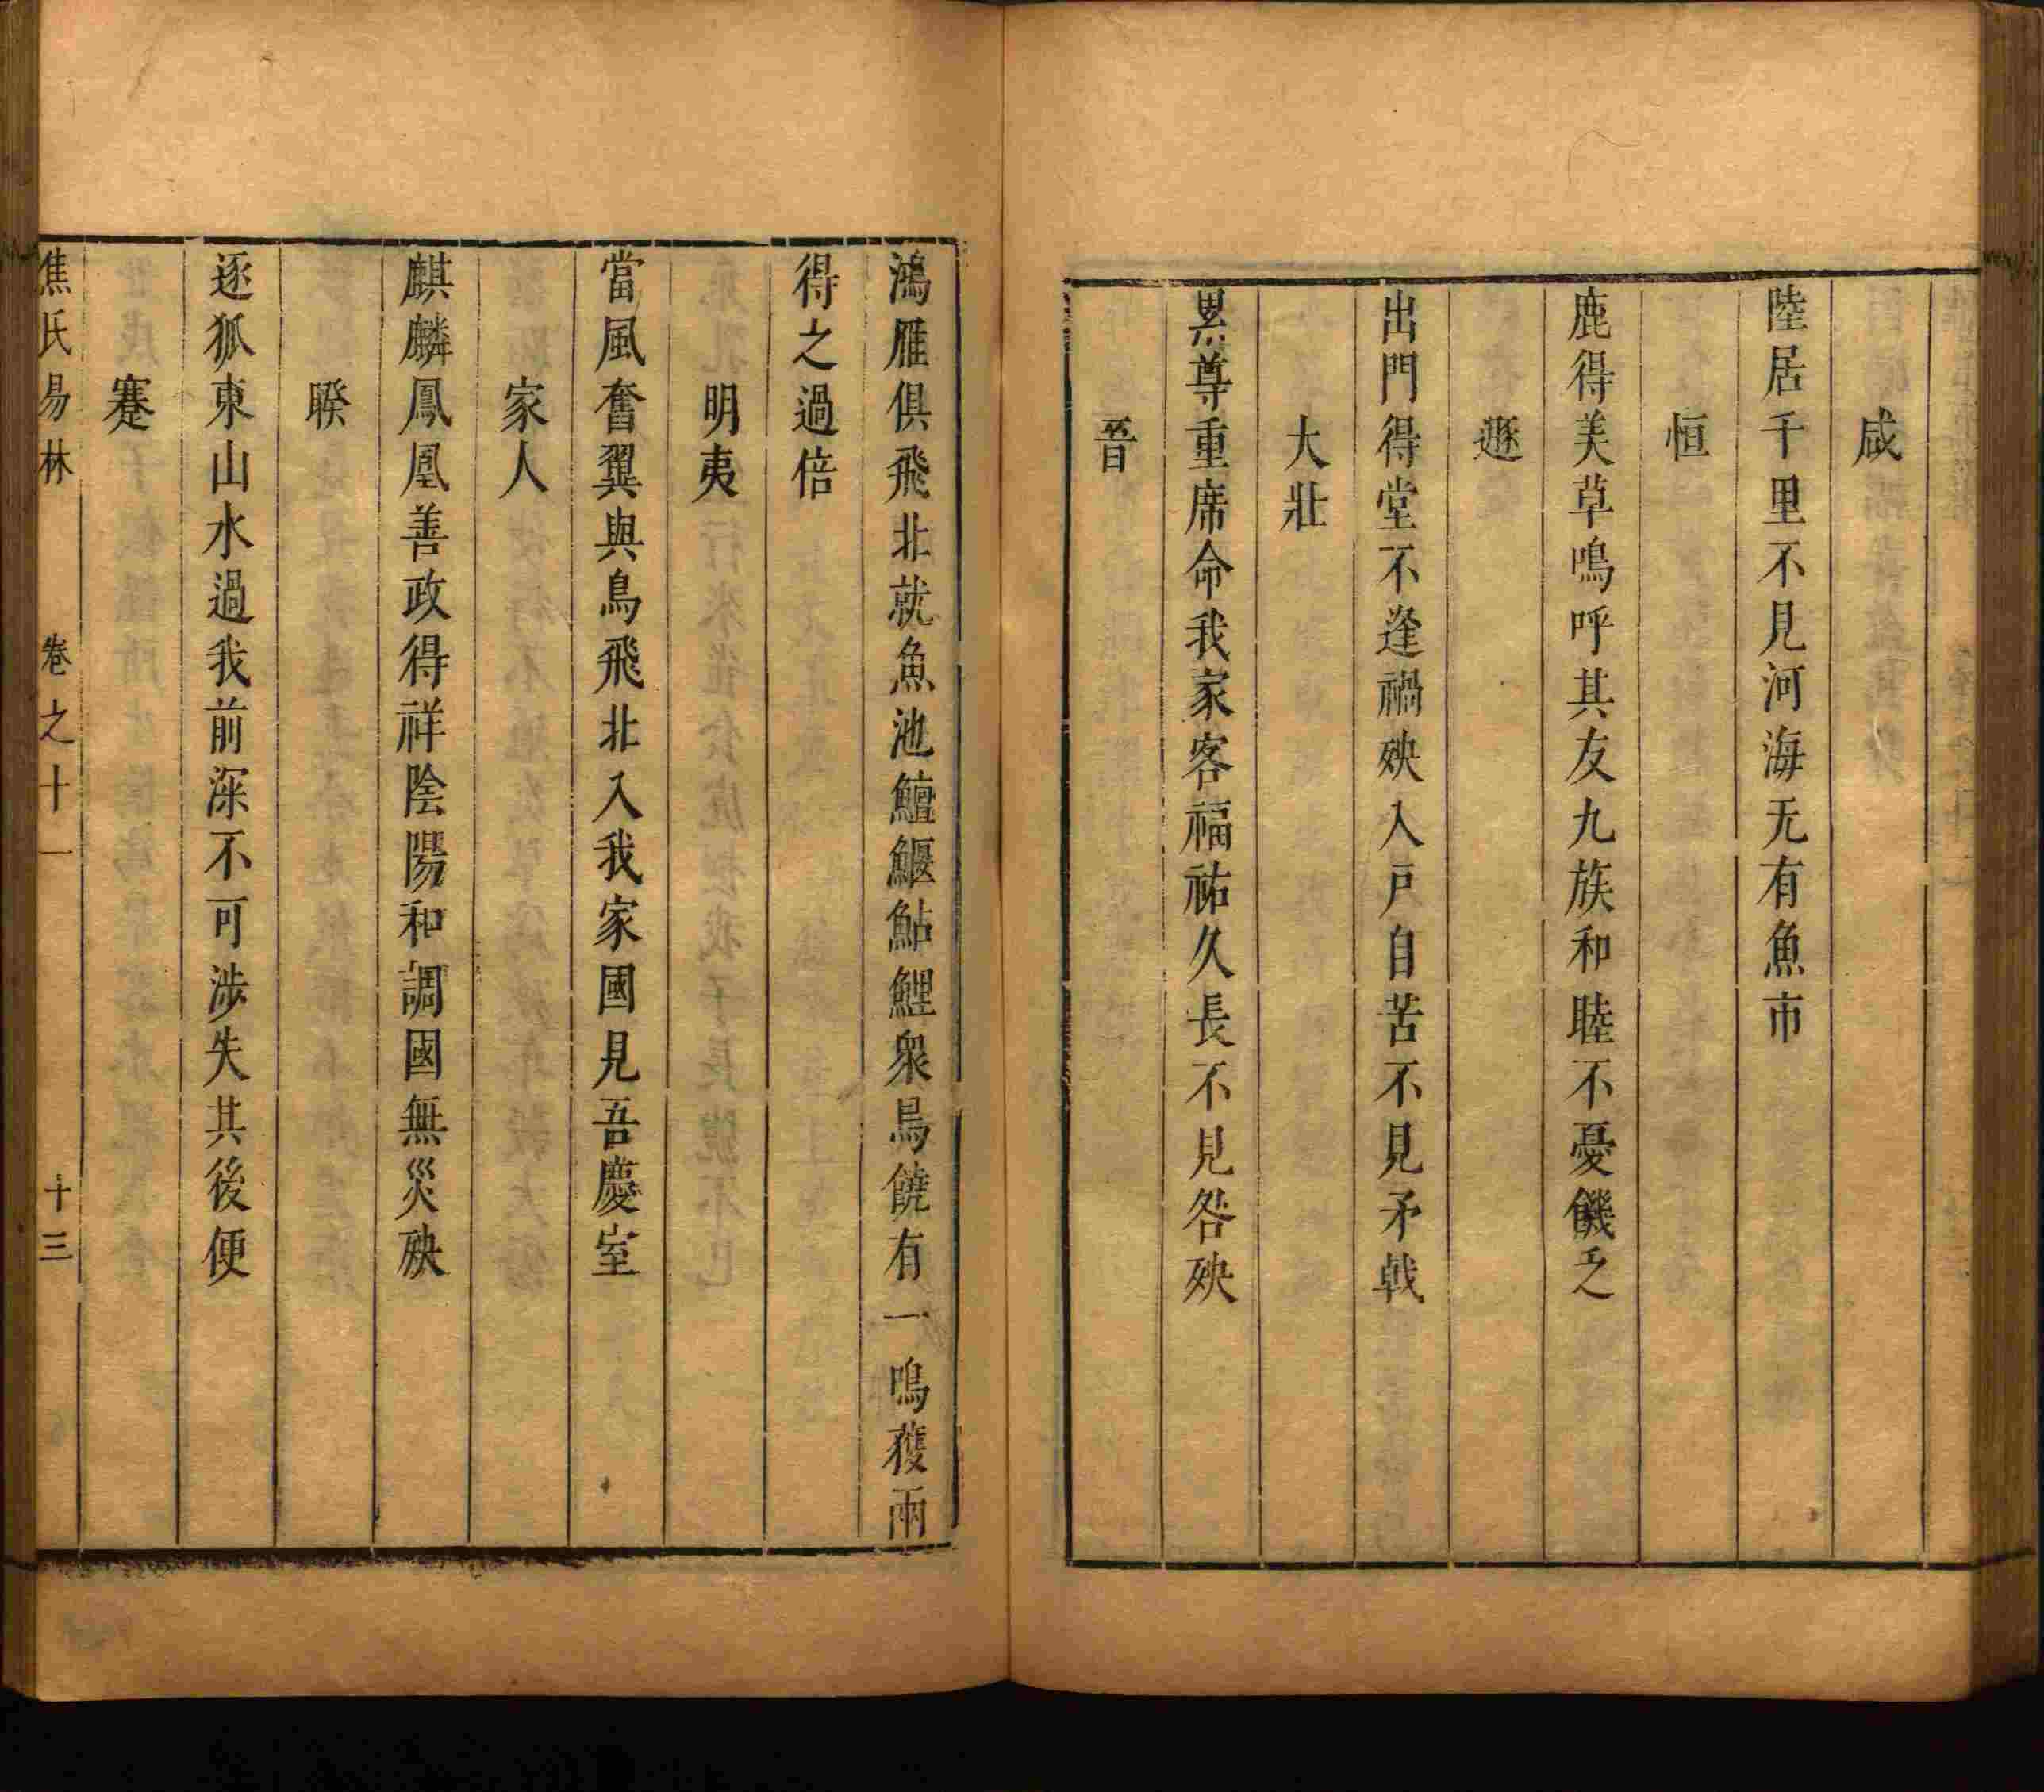 咸
陸居千里不見河海无有魚市
恒
鹿得美草鳴呼其友九族和睦不憂饑乏
遯
出門得堂不逢禍殃入戸自苦不見矛戟
大壯
累尊重席命我家客福祐久長不見咎殃
晉
鴻雁俱飛北就魚池鱣鰋鮎鯉衆鳥饒有一鳴獲兩
得之過倍
明夷
當風奮翼與鳥飛北入我家國見吾慶室
家人
麒麟鳳凰善政得祥陰陽和調國無災殃
睽
逐狐東山水過我前深不可涉失其後便
蹇
焦氏易林 卷之十一 十三